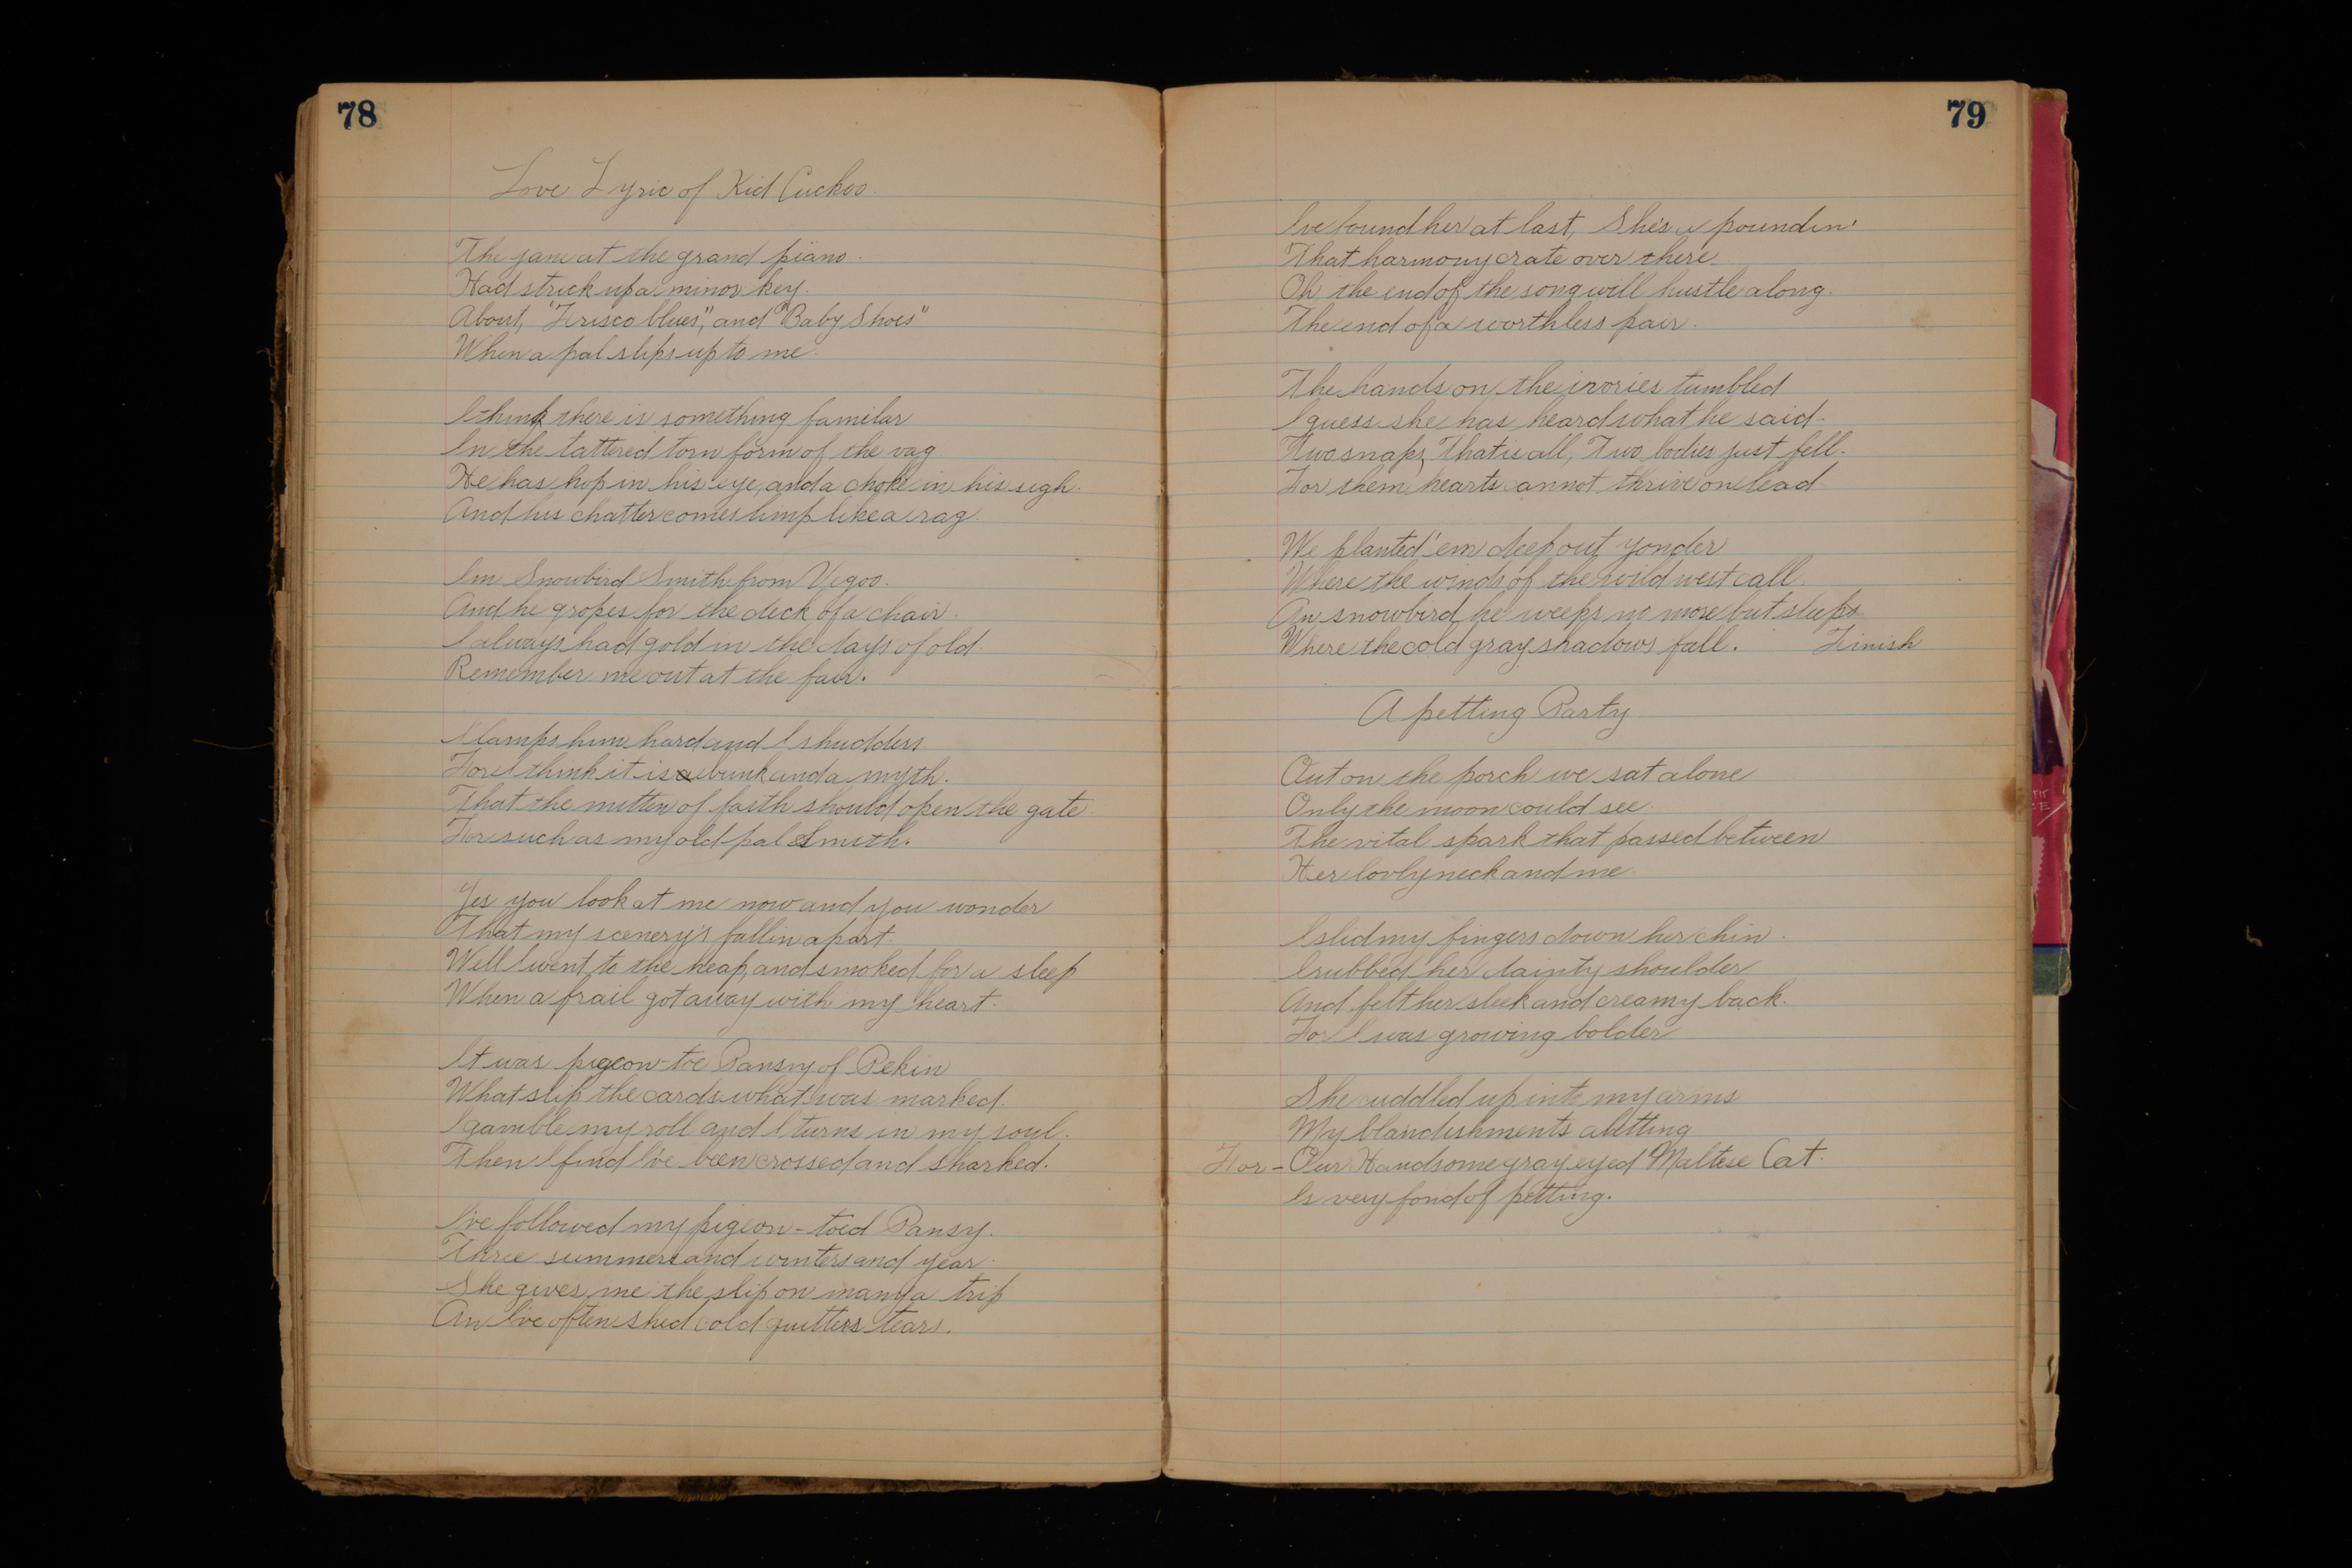 78
Love Lyric of Kid Cuckoo
The jane at the grand piano.
Had strick up a minor key.
About, "Frisco blues", and "Baby Shoes"
When a pal slips up to me.
I think there is something familar
In the tattered torn form of the vag
He has hop in his eye, and a choke in his sigh.
And his chatter comes limp like a rag.
Im Snowbird Smith from Vegoo.
And he gropes for the deck of a chair.
I always had gold in the days of old.
Remember me out at the fair.
I lamps him hard and I shudders.
For I think it is a bunk and a myth.
That the mitten of faith should open the gate
For such as my old pal Smith.
Yes you look at me now and you wonder
That my scenery's fallin apart.
Well I went to the heap, and smoked for a sleep
When a frail got away with my heart.
It was pigeon-toe Pansy of Pekin
What slip the cards what was marked.
I gamble my roll and I turns in my soul.
Then I find I've been crossed and sharked.
I've followed my pigeon-toed Pansy.
Three summers and winters and year.
She gives me the slip on many a trip
An I've often shed cold quitters tears.
79
I've found her at last, She's a poundin'
That harmony crate over there.
Oh the end of the song will hustle along.
The end of a worthless pair.
The hands on the ivories tumbled
I guess she has heard what he said.
Two snaps, That is all, Two bodies just fell.
For them hearts cannot thrive on lead
We planted 'em deep out yonder
Where the winds of the wild west call.
An snowbird he weeps no more but sleeps
Where the cold gray shadows fall. Finish
A petting Party
Out on the porch we sat alone
Only the moon could see.
The vital spark that passed between
Her lovly neck and me.
I slid my fingers down her chin.
I rubbed her dainty shoulder
And felt her sleek and creamy back.
For I was growing bolder
She cuddled up into my arms
My blandishments abetting
For - Our Handsome gray eyed Maltese Cat.
Is very fond of petting.